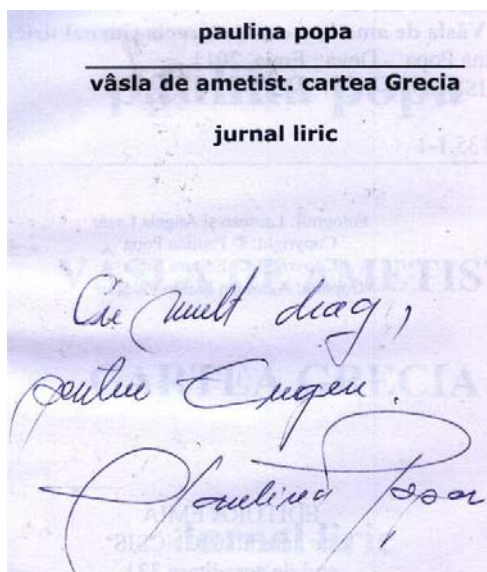 paulina popa
vâsla de ametist. cartea Grecia
jurnal liric
Cu mult drag,
pentru Eugen.
Paulina Popa